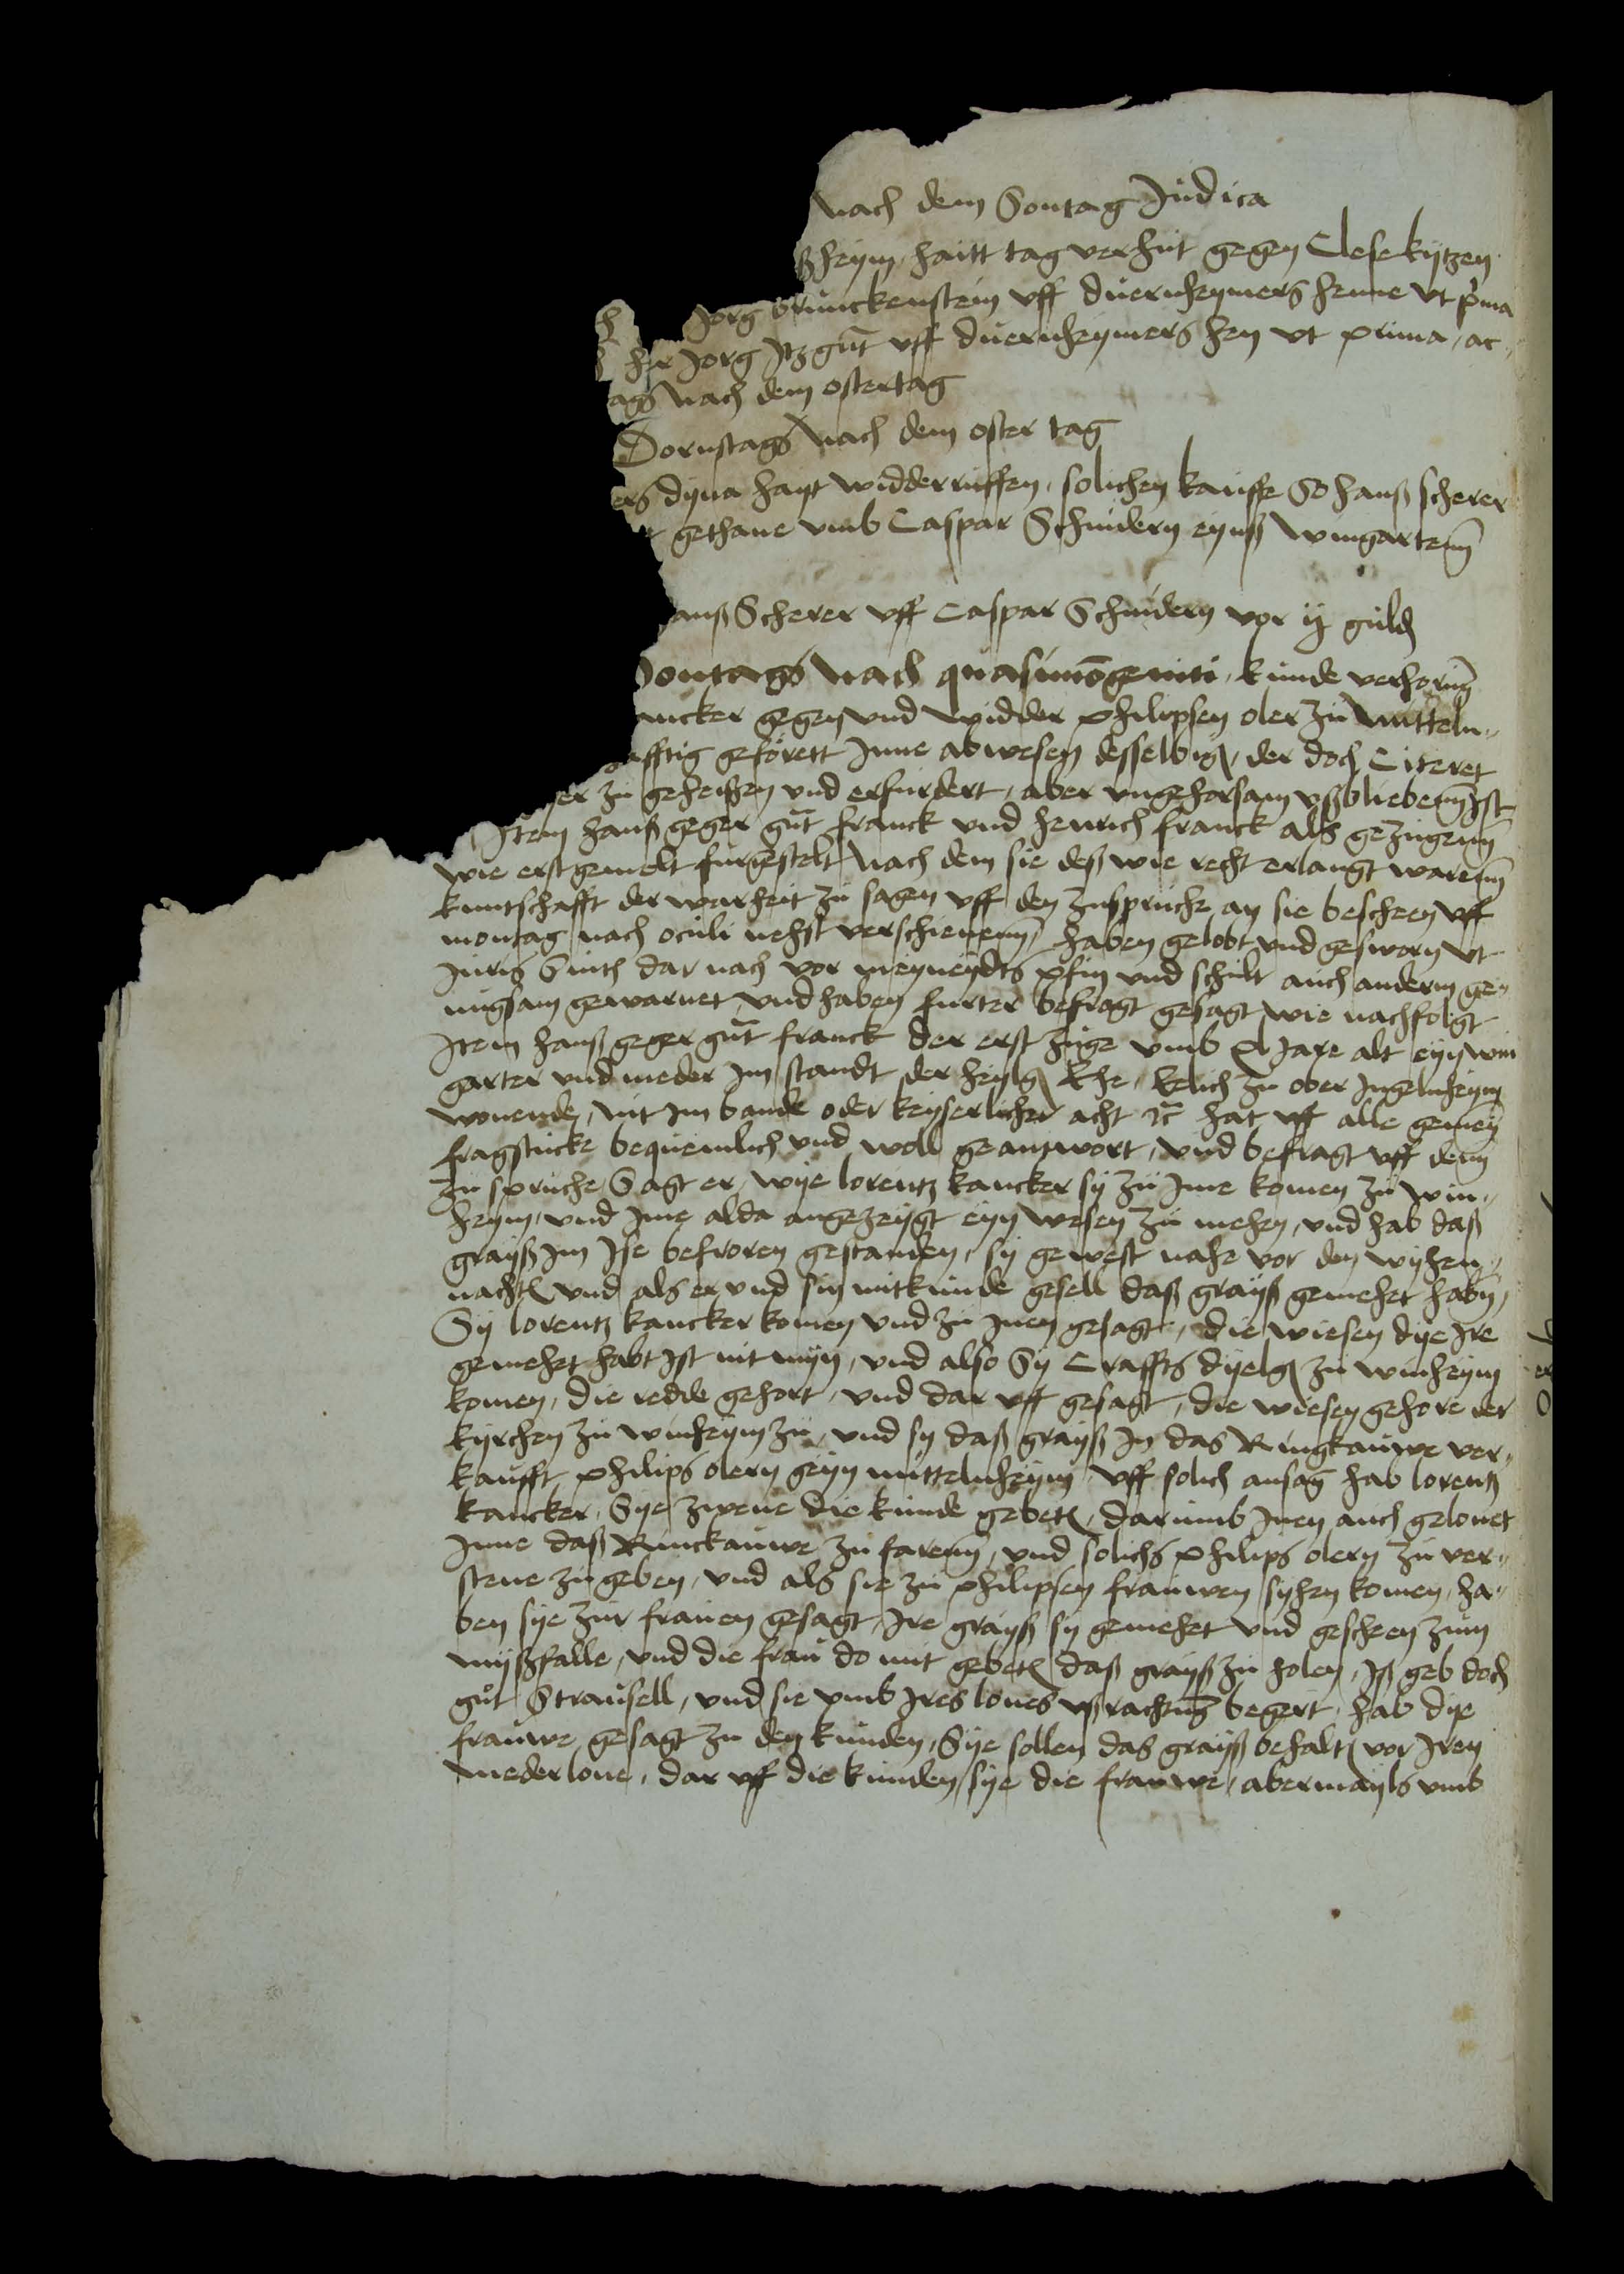 nach dem Sontag Judica
ßheym haitt tag verhut gegen Clese kytzen
Jorg brunckenstein uff duernheymers henne ut prima
her Jorg Itzgut uff duernheymers hen ut prima ac
ags nach dem ostertag
Dornstags nach dem oster tag
ers dyna hayt widderruffen solichen kauffe So hanß scherer
t gethane umb Caspar Schnidern eynß wingartenn
anß Scherer uff Caspar Schnidern vor ij guld
ontags nach quasimogeniti kunde verhorung
ancker gegen und widder philipsen oler zu mitteln-
afftig gefurett Inne abwesen desselbigen der doch Citeret
er zu geheißen und erfurdert aber ungehorsam ußbliebenn Ist
Item hanß geger gut franck und henrich franck als gezugenn
wie erstgemelt furgestelt nach dem sie deß wie recht erlangt warenn
kuntschafft der warheit zu sagen uff den zuspruche an sie bescheen uff
montag nach oculi nehst verschienenn haben gelobt und gesworn ut
Juris Sint dar nach vor meyneydts und schult auch anderm ge-
nugsam gewarnet und haben furter befragt gesagt wie nachfolgt
Item hanß geger gut franck der erst zuge umb xl Jare alt eyn win
garter und meder Im standt der heylg Ehe Elich zu ober Ingelnheym
wonende nit Im bande oder keyserlicher acht rc hat uff alle gemeyn
fragstucke bequemlich und woll geantwort und befragt uff denn
zu spruche Sagt er wye lorentz kancker sy zu Ime komen zu win-
heym und Ime alda angezeygt eyn wesen zu mehen und hab daß
grayß Im Ise befroren gestanden sy gewest nahe vor den wyhen-
nachten und als er und sin mitkunde gesell daß grayß gemehet habn
Sy lorentz kancker komen und zu Inen gesagt die wiesen dye Ire
gemehet habt Ist nit myn und also Sy Craffts dyelg zu winheym
komen die redde gehort und dar uff gesagt die wiesen gehore der
kyrchen zu winheym zu und sy daß grayß In das Ringkauwe ver-
kaufft philips olern geyn mittelnheym uff solich ansag hab lorentz
kancker Sye zwene die kunde gebeten darumb Inen auch gelonet
Inne daß Rinckauwe zu farenn und solichs philips olern zu ver-
stene zu geben und als sie zu philipsen frauwen syhen komen ha-
ben sye zur frauen gesagt Ire grayß sy gemehet und gescheen zum
myßfalle und die frau do mit gebeten daß grayß zu holen Iß geb doch
gut Strausell und sie umb Ires lones ußrachtung begert hab dye
frauwe gesagt zu den kunden Sye sollen das grayß behalten vor Iren
mederlone dar uff die kunden sye die frauwe abermayls umb